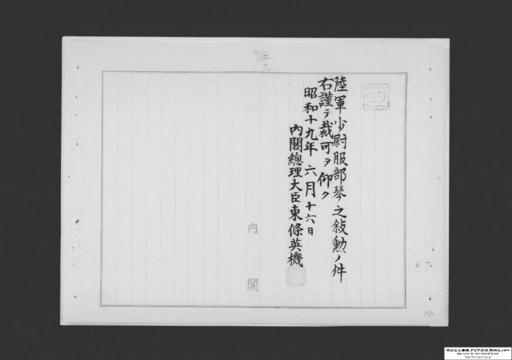 陸軍少尉服部琴之敍勲ノ件
右謹テ裁可ヲ仰ク
昭和十九年六月十六日
内閣總理大臣東條英機
内閣